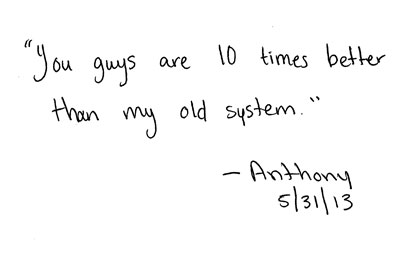 "You guys are 10 times better
than my old system."
- Anthony
5/31/13